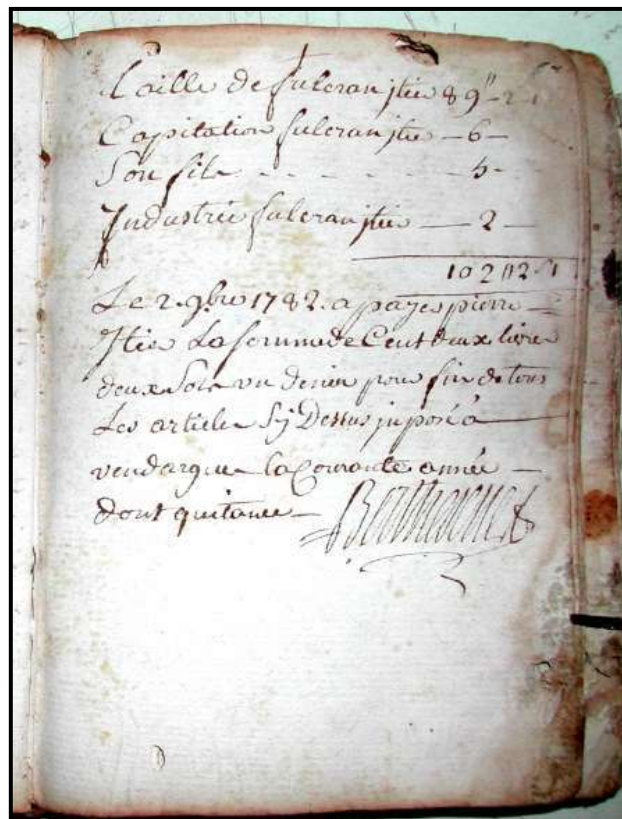 Taille de fulcran jtier 89" – 2 – 1
Capitation fulcran jtier — 6 —
Son fils - - - - - - 5 -
Industrie fulcran jtier — 2 —
102 " 2 s 1
Le 2. 9bre 1782. a payes pierre
Itier La somme de Cent deux livres
deux Sols un denier pour fin de tous
Les articles Sy Dessus imposé a
vendargues la Courante année —
dont quitance —